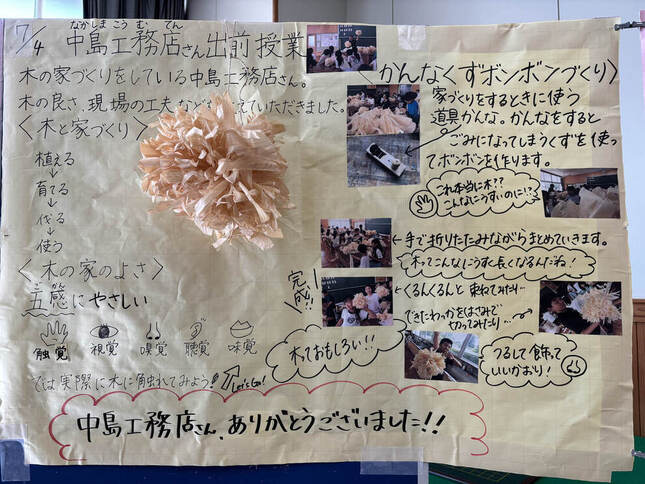 7/4
なかしまこうむてん
中島工務店さん出前授業
木の家づくりをしている中島工務店さん。
木の良さ、現場の工夫など えていただきました。
〈木と家づくり〉
植える
↓
育てる
↓
伐る
↓
使う
〈木の家のよさ〉
五感にやさしい
触覚 視覚 嗅覚 聴覚 味覚
では実際に木に触れてみよう!
Let's Go!
〈かんなくずボンボンづくり〉
家づくりをするときに使う
道具かんな。かんなをすると
ごみになってしまうくずを使っ
てボンボンを作ります。
これ本当に木??
こんなにうすいのに!?
←手で折りたたみながらまとめていきます。
木ってこんなにうすく長くなるんだね!
←くるんくるんと束ねてみたり…
できたわっかをはさみで
切ってみたり…→
完成!!
木っておもしろい!!
つるして飾って
いいかおり!
中島工務店さん、ありがとうございました!!